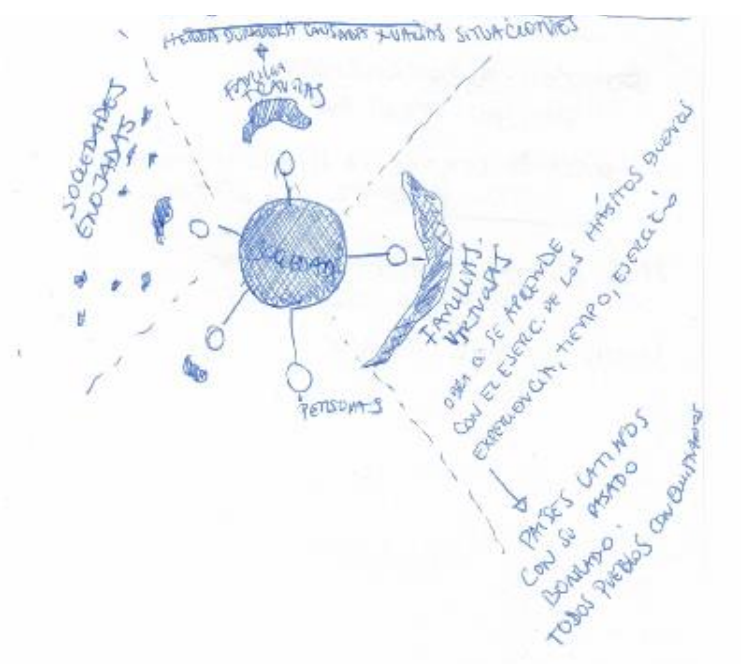 HERIDA DURADERA CAUSADA X VARIAS SITUACIONES
FAMILIA
SOCIEDADES
ENOJADAS
SOCIEDAD
FAMILIAS
VIRTUOSAS
OBRA Q SE APRENDE
CON EL EJERC. DE LOS HÁBITOS BUENOS
EXPERIENCIA, TIEMPO, EJERCICIO
PERSONAS
PAÍSES LATINOS
CON SU PASADO
BORRADO.
TODOS PUEBLOS CONQUISTADOS